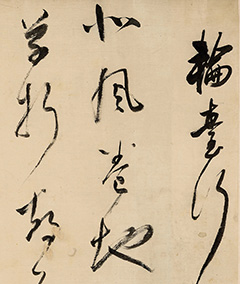 輪臺行
北風卷地
草折